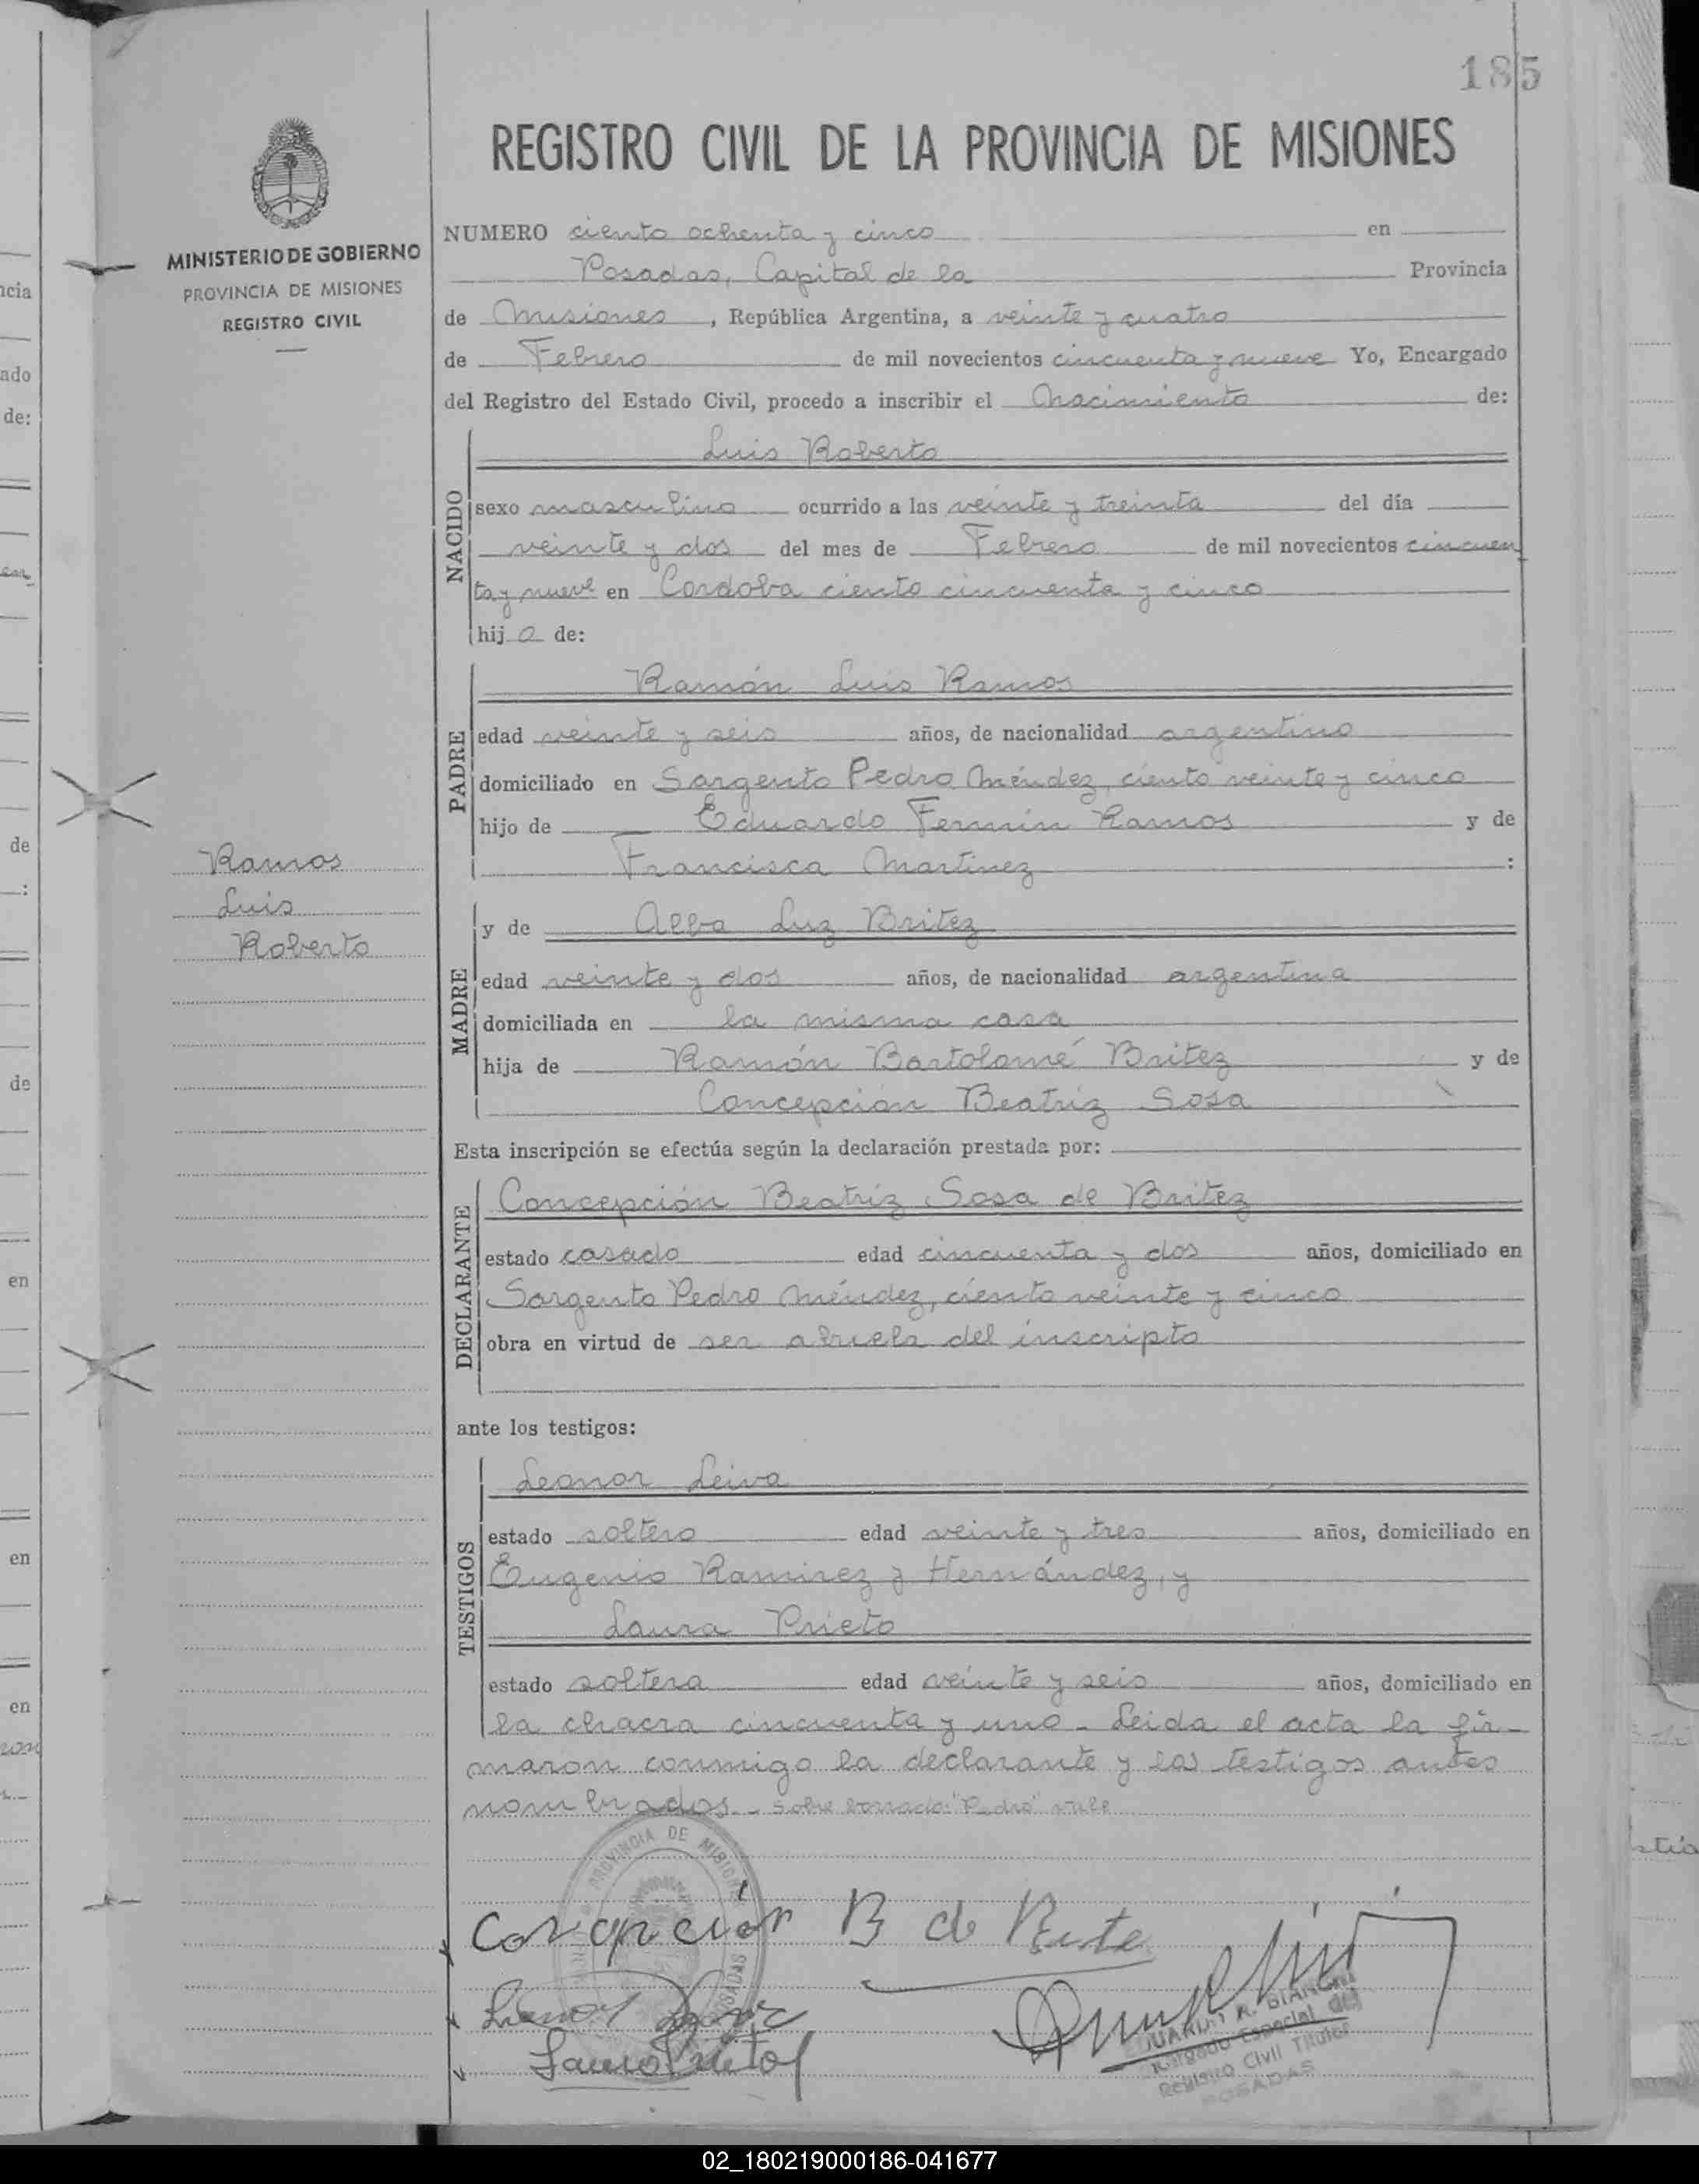 185
REGISTRO CIVIL DE LA PROVINCIA DE MISIONES
MINISTERIO DE GOBIERNO
PROVINCIA DE MISIONES
REGISTRO CIVIL
NUMERO ciento ochenta y cinco en
Posadas, Capital de la Provincia
de Misiones, República Argentina, a veinte y cuatro
de Febrero de mil novecientos cincuenta y nueve Yo, Encargado
del Registro del Estado Civil, procedo a inscribir el Nacimiento de:
NACIDO
Luis Roberto
sexo masculino ocurrido a las veinte y treinta del día
veinte y dos del mes de Febrero de mil novecientos cincuen
ta y nueve en Cordoba ciento cincuenta y cinco
hij o de:
PADRE
Ramón Luis Ramos
edad veinte y seis años, de nacionalidad argentino
domiciliado en Sargento Pedro Méndez, ciento veinte y cinco
hijo de Eduardo Fermín Ramos y de
Francisca Martinez :
Ramos
Luis
Roberto
MADRE
y de Alba Luz Britez
edad veinte y dos años, de nacionalidad argentina
domiciliada en la misma casa
hija de Ramón Bartolomé Britez y de
Concepción Beatriz Sosa
Esta inscripción se efectúa según la declaración prestada por:
DECLARANTE
Concepción Beatriz Sosa de Britez
estado casado edad cincuenta y dos años, domiciliado en
Sargento Pedro Méndez, ciento veinte y cinco
obra en virtud de ser abuela del inscripto
ante los testigos:
TESTIGOS
Leonor Leiva
estado soltero edad veinte y tres años, domiciliado en
Eugenio Ramirez y Hernández, y
Laura Prieto
estado soltera edad veinte y seis años, domiciliado en
la chacra cincuenta y uno - Leida el acta la fir-
maron conmigo la declarante y los testigos antes
nombrados. - Sobre borrado: "Pedro" vale
PROVINCIA DE MISIONES
POSADAS
B de
Registro Civil Titular
POSADAS
02_180219000186-041677